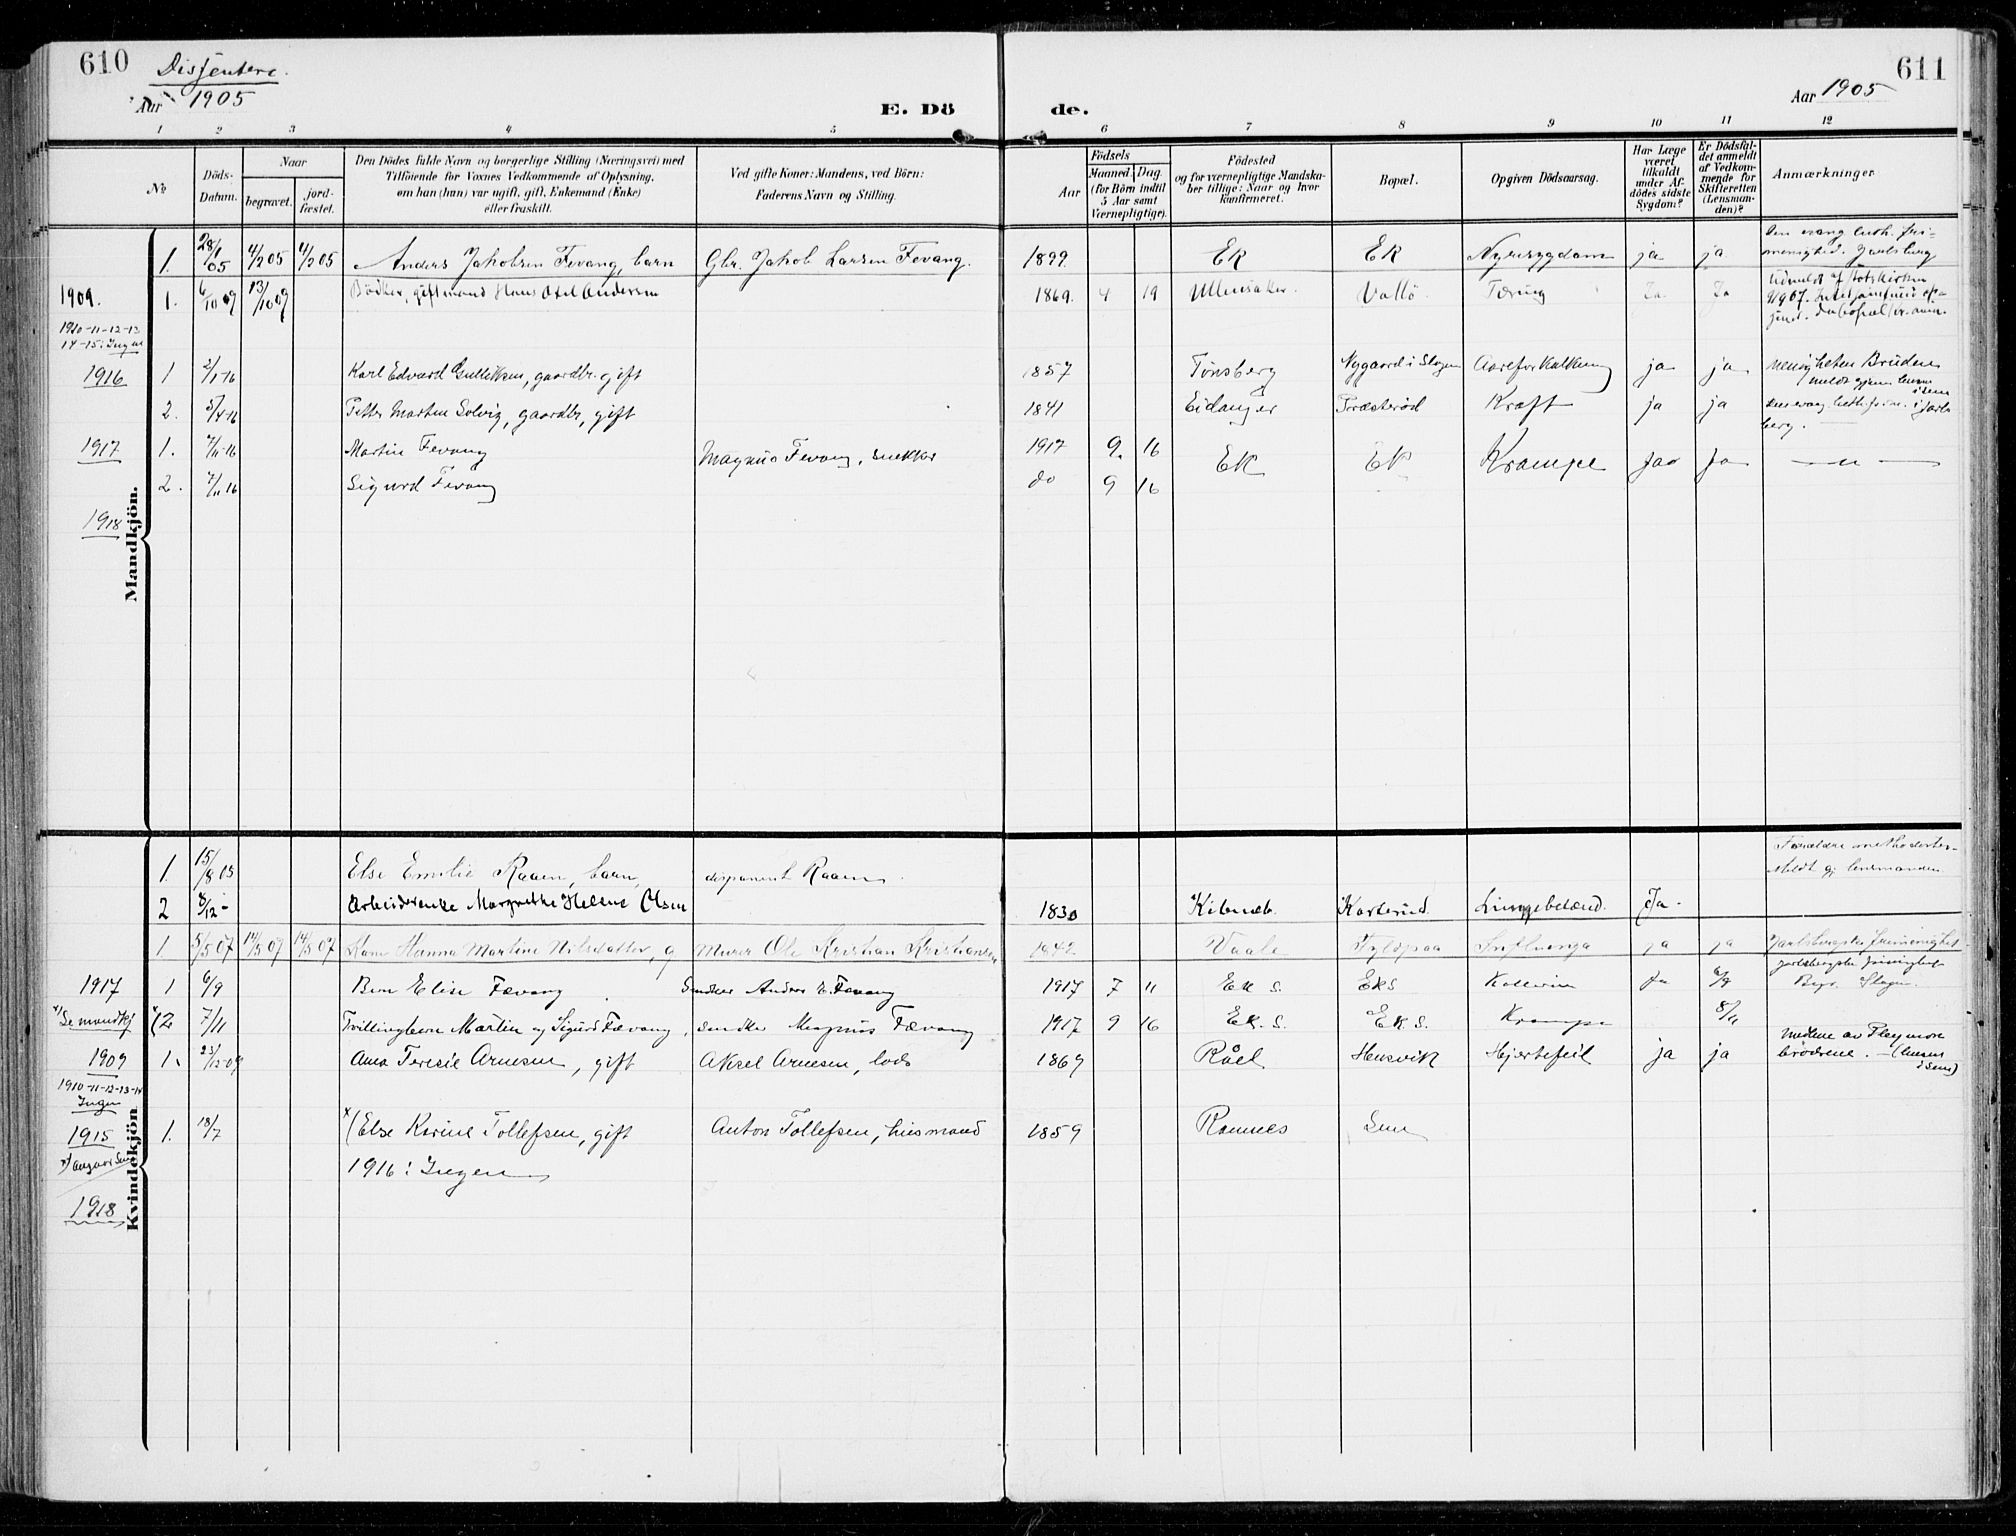 610
Dissentere.
Aar 1905
E. Dö
de.
Aar 1905
611
1 2 3 4 5 6 7 8 9 10 11 12
No
Döds-Datum.
Naar
begravet.
jord-fæstet.
Den Dödes fulde Navn og borgerlige Stilling (Næringsvei) med
Tilföiende for Voxnes Vedkommende af Oplysning,
om han (hun) var ugift, gift, Enkemand (Enke)
eller fraskilt.
Ved gifte Koner: Mandens, ved Börn:
Faderens Navn og Stilling.
Födsels
Aar
Maaned. Dag.
(for Börn indtil
5 Aar samt
Værnepligtige).
Födested
og for værnepligtige Mandska-
ber tillige: Naar og hvor
konfirmeret.
Bopæl.
Opgiven Dödsaarsag.
Har Læge
været
tilkaldt
under Af-
dödes sidste
Sygdom?
Er Dödsfal-
det anmeldt
af Vedkom-
mende for
Skifteretten
(Lensman-
den)?
Anmærkninger
Mandkjön.
1. 28/1 05 4/2 05 4/2 05 Anders Jakobsen Fevang, barn Gbr. Jakob Larsen Fevang. 1899 Ek Ek Nyresygdom ja ja Den evang. luth. fri-
menighed. Jarlsberg
1909. 1. 6/10 09 13/10 09 Bödker, gift mand Hans Axel Andersen 1869. 4 19 Ullensaker. Vallö. Tæring Ja Ja
1910-11-12-13
14-15: Ingen
1916 1 2/1-16 Karl Edvard Gulliksen, gaardbr. gift 1857 Tönsberg Nygaard i Slagen Aareforkalkning ja ja Menigheten Brüdern
2. 5/4-16 Petter Martin Solvig, gaardbr, gift 1841 Eidanger Træsteröd Kræft ja ja
berg.
1917 1. 7/11-16 Martin Fevang Magnus Fevang, snekker 1917 9. 16 Ek Ek Krampe Ja Ja — " —
2. 7/11 16 Sigurd Fevang do 9 16
1918
Kvindekjön
1. 15/8 05 Else Emilie Raaen, barn, disponent Raaen. Forældre methodister-
Meldt gj. lensmanden
2 3/12 - Arbeiderenke Margrethe Helene Olsen 1830 Kilsund. Karterud. Lungebetænd. Ja.
1 5/5 07 14/5 07 14/5 07 Hanna Martine Nilsdatter, g Murer Ole Kristian Kristiansen 1842. Vaale Influenza ja ja Jarlsbergske frimenighet
1917 1 6/9 Elise Fævang Snedker Anders E. Fævang 1917 7 11 Ek S. Ek S Kolerine Ja 6/9 Jarlsbergske frimenighet
x) Se mandkj x(2 7/11 Tvillingbarn Martin og Sigurd Fævang, snedker Magnus Fævang 1917 9 16 Ek. S. Ek. S. Krampe 8/11
1909 1. 23/12-09 Anna Teresie Arnesen, gift Aksel Arnesen, lods 1869 Råel Husvik Hjertefeil ja ja Medlem av Pleymore
brödrene. — (lensm
i Sem)
1910-11-12-13-14
Ingen
1915 1. 18/7 x(Else Karine Tollefsen, gift Anton Tollefsen, husmand 1859 Ramnes Sem
1916: Ingen
1918